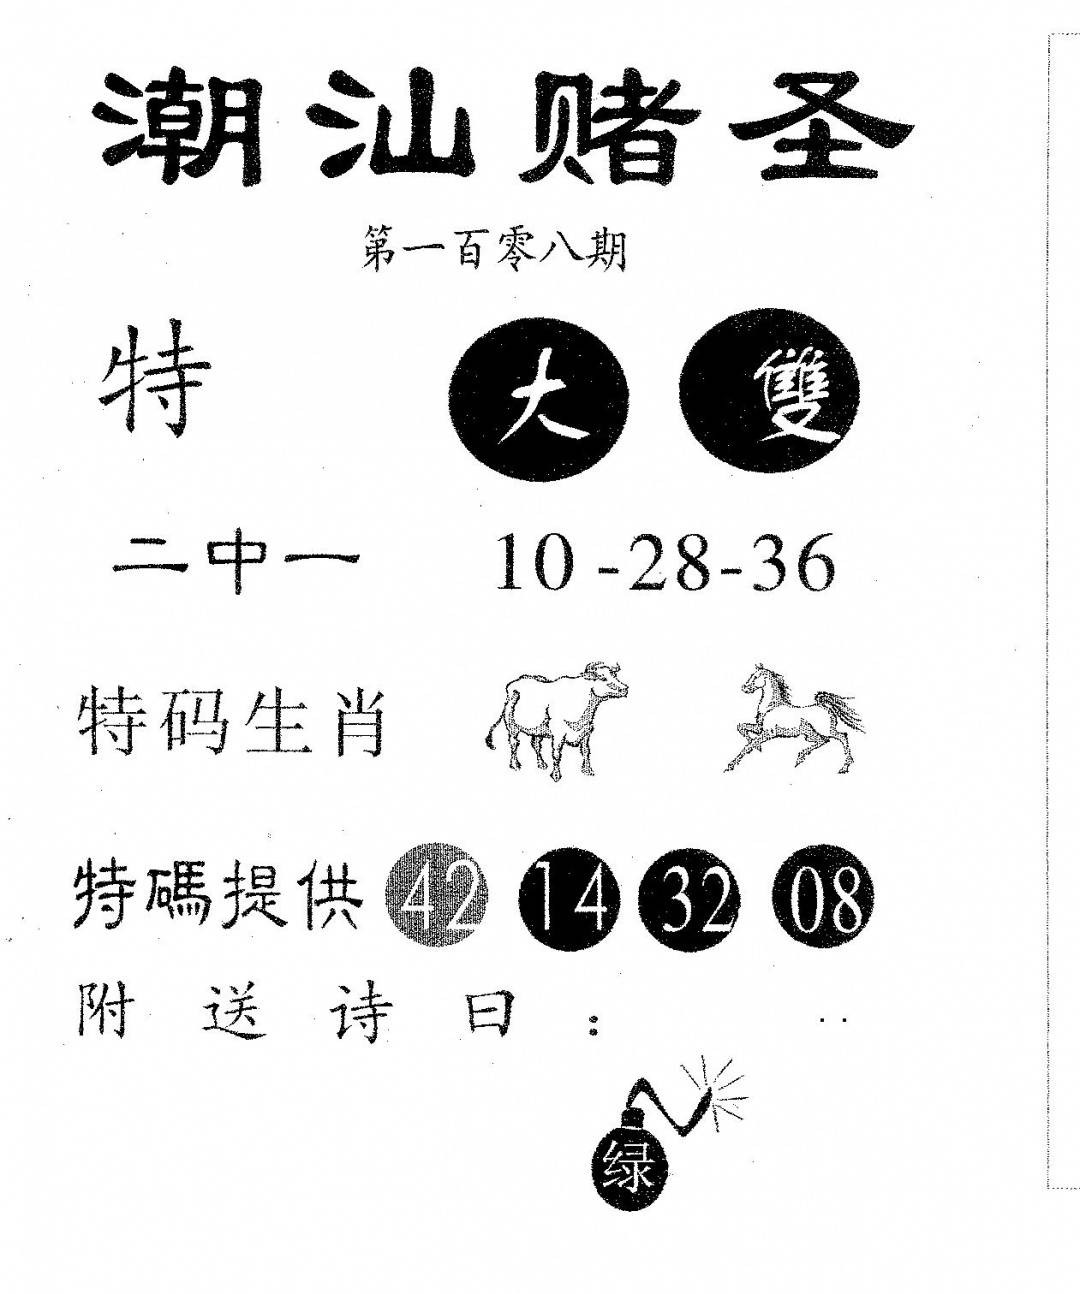 潮汕赌圣
第一百零八期
特 大 雙
二中一 10-28-36
特码生肖
特碼提供 42 14 32 08
附送诗曰：
绿